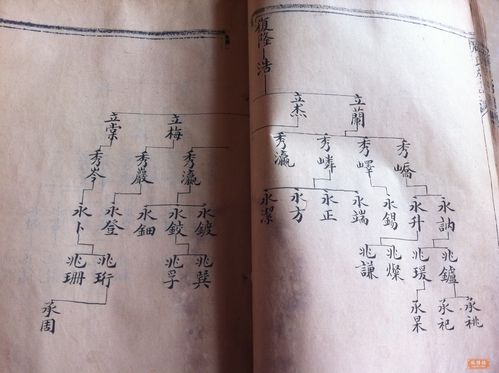 復隆
浩
立蘭
立杰
秀嶠
秀嶧
秀嶙
秀瀛
永訥
永升
永錫
永端
永正
永方
永潔
兆鑪
兆瑗
兆燦
兆謙
承祧
承祀
承杲
立梅
立棠
秀瀛
秀巖
秀岑
永鈹
永鉸
永鈿
永登
永卜
兆巽
兆孚
兆珩
兆珊
承周